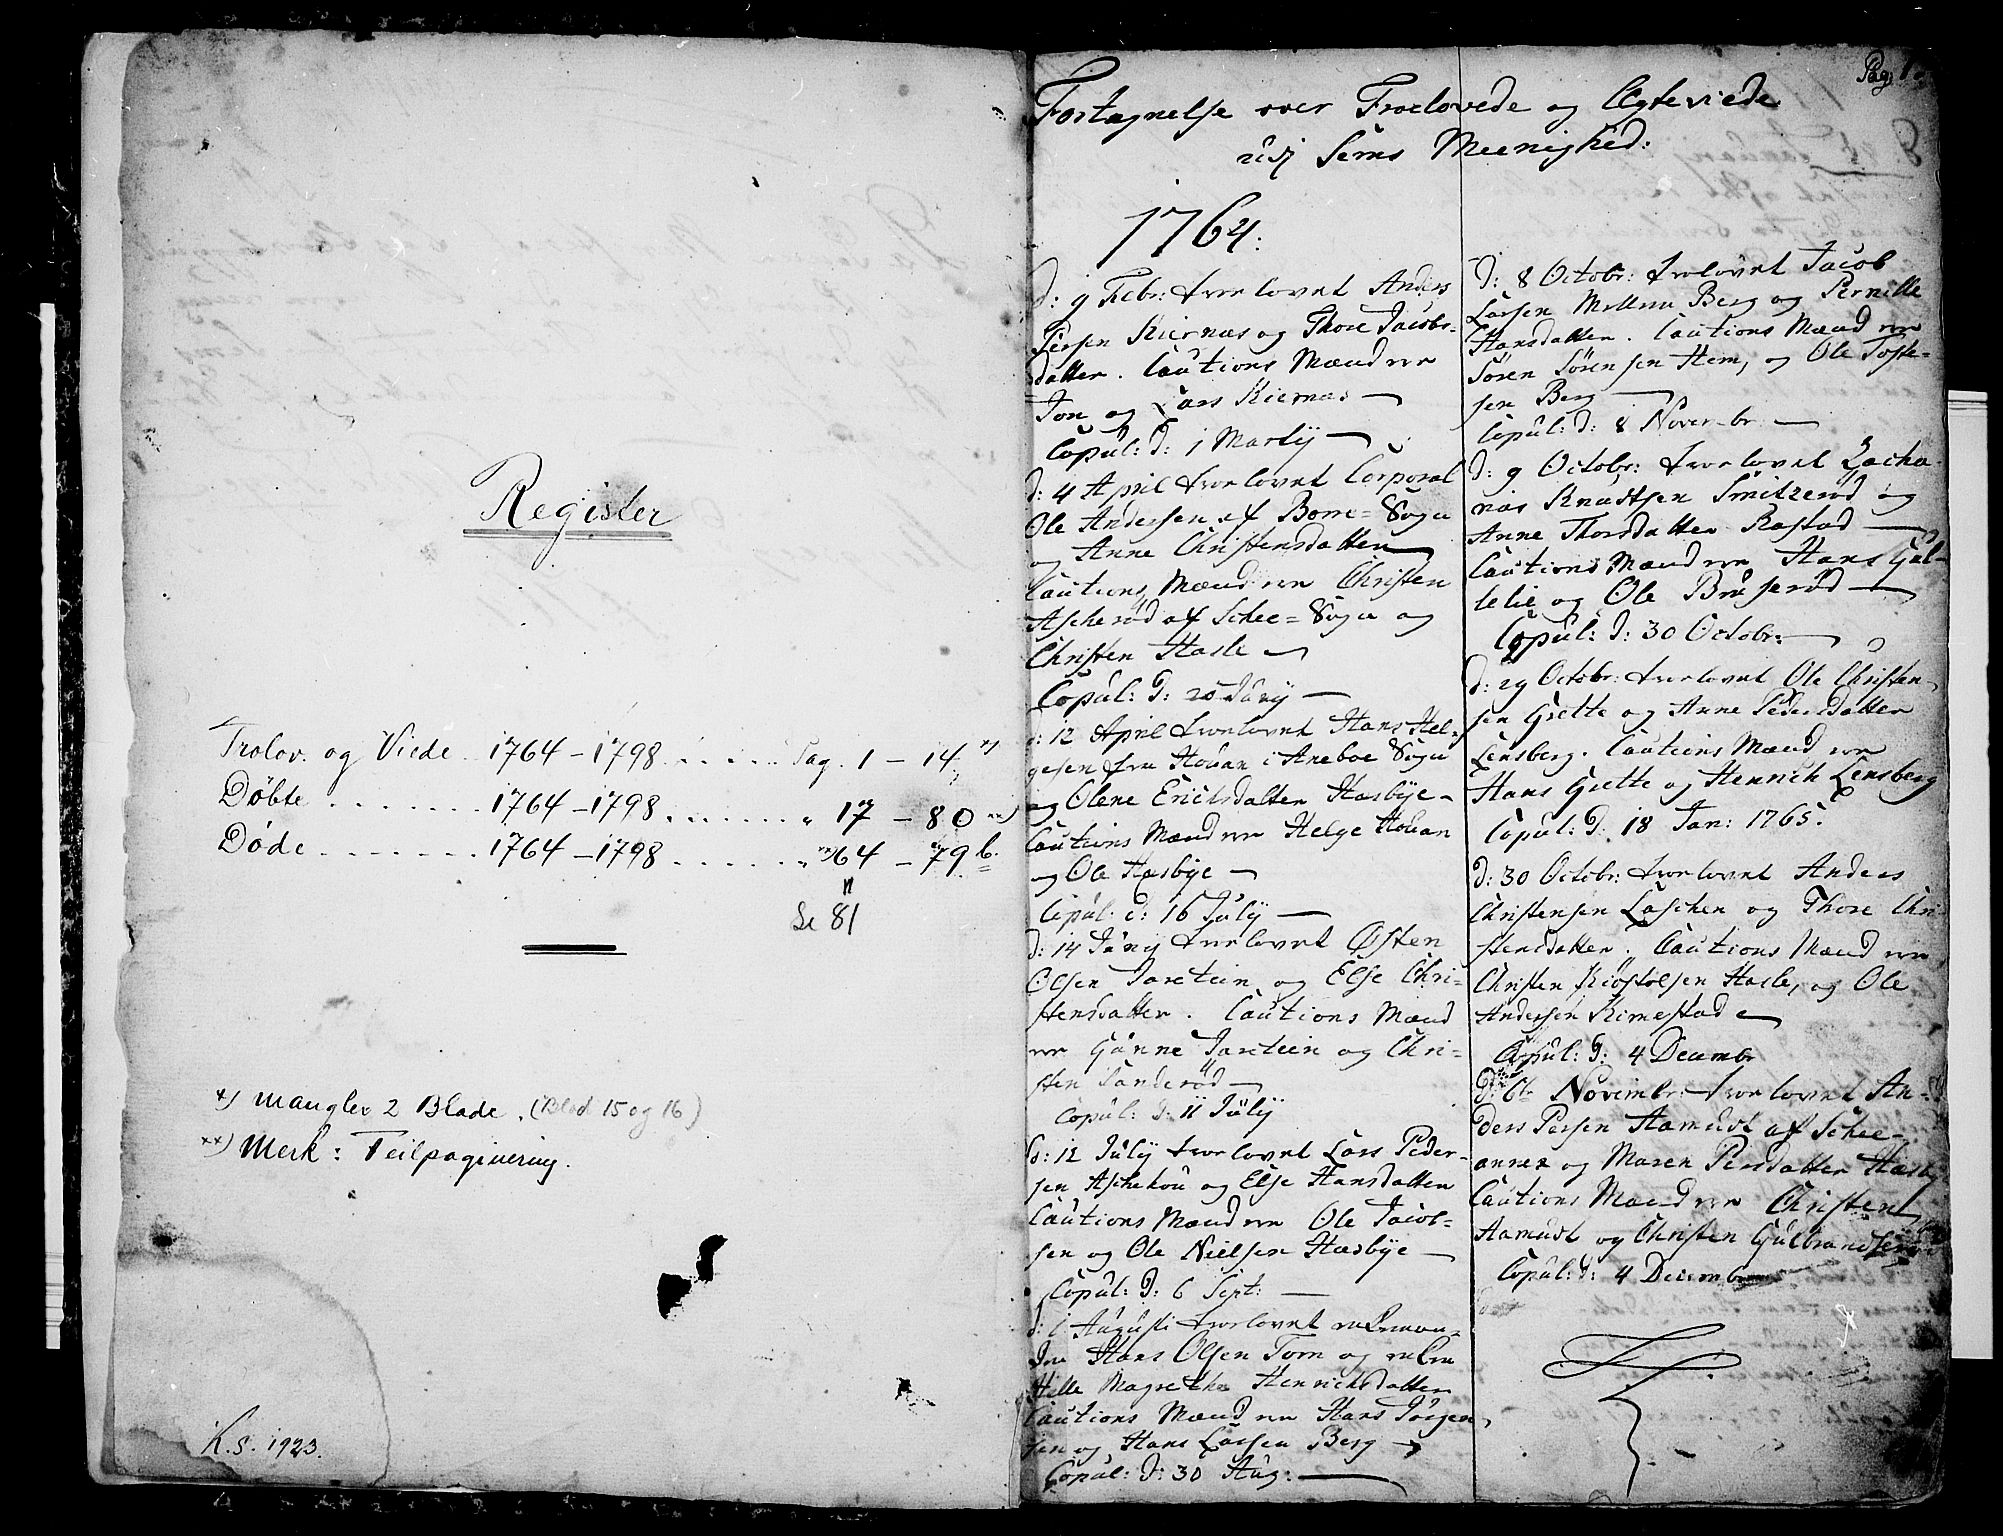 Register
Trolov. og Viede 1764 – 1798 ..... Pag. 1 – 14 *)
Döbte ....... 1764 – 1798 ....... " 17 – 80 **)
Döde ....... 1764 – 1798 ....... " **) 64 – 79 b.
"
Se 81
*) mangler 2 Blade. (Blad 15 og 16)
**) Merk: Feilpaginering.
K.S. 1923.
Pag. 1.
Fortegnelse over Troelovede og Egteviede
udj Sems Meenighed:
1764:
d: 9 Febr: troelovet Anders
Persen Kiernæs og Thore Jacobs-
datter. Cautions Mænd ere
Jon og Lars Kiernæs
Copul: d: 1 Martij
d: 4 April troelovet Corporal
Ole Andersen af Borre-Sogn
og Anne Christensdatter
Cautions Mænd ere Christen
Ascherød af Schee-Sogn og
Christen Hasle
Copul: d: 20 Junij
d: 12 April troelovet Hans Hel-
gesen fra Houan i Aneboe Sogn
og Olene Erichsdatter Hæsbye
Cautions Mænd ere Helge Houan
og Ole Hæsbye
Copul: d: 16 Julij
d: 14 Junij troelovet Østen
Olsen Jaretein og Else Chri-
stensdatter. Cautions Mænd
ere Gunne Jaretein og Chri-
sten Sanderød
Copul: d: 11 Julij
d: 12 Julij troelovet Lars Peder-
sen Aschehou og Else Hansdatter
Cautions Mænd ere Ole Jacob-
sen og Ole Nielsen Hæsbye
Copul: d: 6 Sept:
d: 1 Augusti troelovet
Hans Olsen Tom og
Helle Magrethe Henrichsdatter
Cautions Mænd ere Hans Jörgen-
sen og Hans Larsen Berg
Copul: d: 30 Aug:
d: 8 Octobr: trolovet Jacob
Larsen Mellem Berg og Pernille
Hansdatter. Cautions Mænd ere
Sören Sörensen Hem, og Ole Toste-
sen Berg
Copul: d: 8 Novembr
d: 9 Octobr: troelovet Zacha-
rias Knudtsen Smitzerød og
Anne Thorsdatter Rastad
Cautions Mænd ere Hans Gul-
lelie og Ole Bruserød
Copul: d: 30 Octobr:
d: 29 Octobr: troelovet Ole Christen-
sen Grette og Anne Pedersdatter
Lensberg. Cautions Mænd ere
Hans Grette og Henrich Lensberg
Copul: d: 18 Jan: 1765.
d: 30 Octobr: troelovet Anders
Christensen Laschen og Thore Chri-
stensdatter. Cautions Mænd ere
Christen Kiøstolsen Hasle, og Ole
Andersen Rimestad
Copul: d: 4 Decembr
d: 6te Novembr: troelovet An-
ders Persen Hamudt af Schee-
annex og Maren Persdatter
Cautions Mænd ere Christen
Hamudt og Christen Gulbrandsen
Copul: d: 4 Decembr